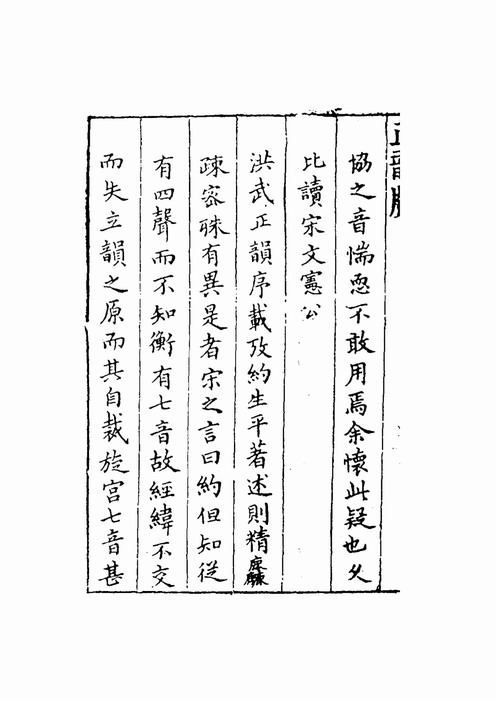 協之音惴恧不敢用焉余懷此疑也久
比讀宋文憲公
洪武正韻序載攷約生平著述則精麤
疎宻殊有異是者宋之言曰約但知從
有四聲而不知衡有七音故經緯不交
而失立韻之原而其自裁旋宮七音甚